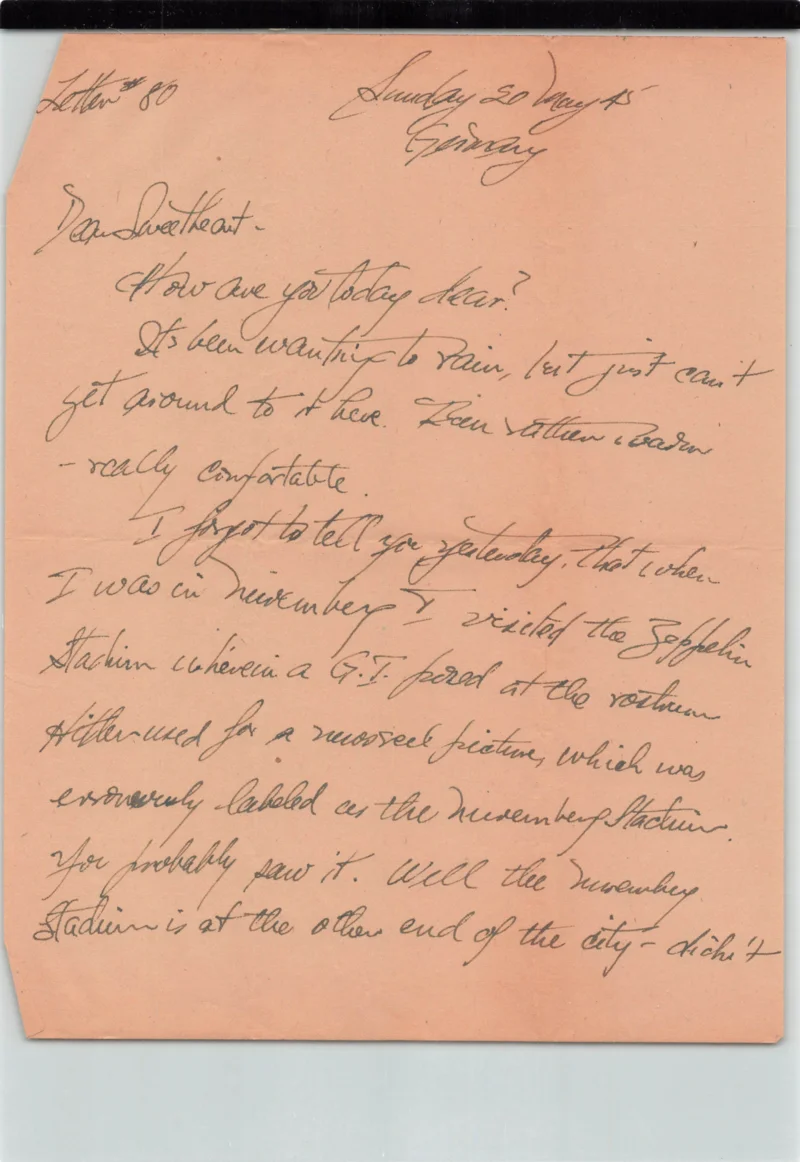 Letter # 80
Sunday 20 May 45
Germany
Dear Sweetheart -
How are you today dear?
Its been wanting to rain, but just can't
get around to it here. Been rather warm
- really comfortable.
I forgot to tell you yesterday, that when
I was in Nuremberg I visited the Zeppelin
Stadium wherein a G.I. posed at the rostrum
Hitler used for a newsreel picture, which was
erroneously labeled as the Nuremberg Stadium.
You probably saw it. Well the Nuremberg
Stadium is at the other end of the city - didn't